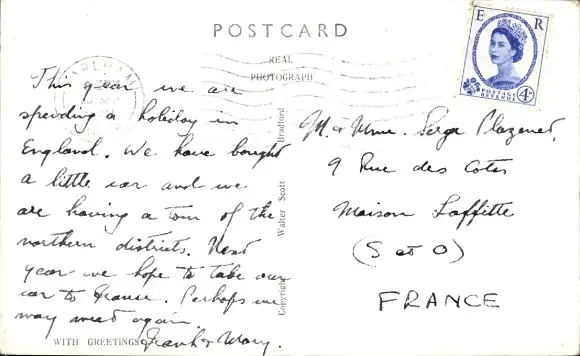 POSTCARD
REAL
PHOTOGRAPH
E R
POSTAGE
REVENUE
4D
This year we are
spending a holiday in
England. We have bought
a little car and we
are having a tour of the
northern districts. Next
year we hope to take our
car to France. Perhaps we
may meet again.
Frank & Mary.
WITH GREETINGS
Copyright Walter Scott Bradford
M. & Mme. Serge
9 Rue des Cotes
Maison Laffitte
(S et O)
FRANCE